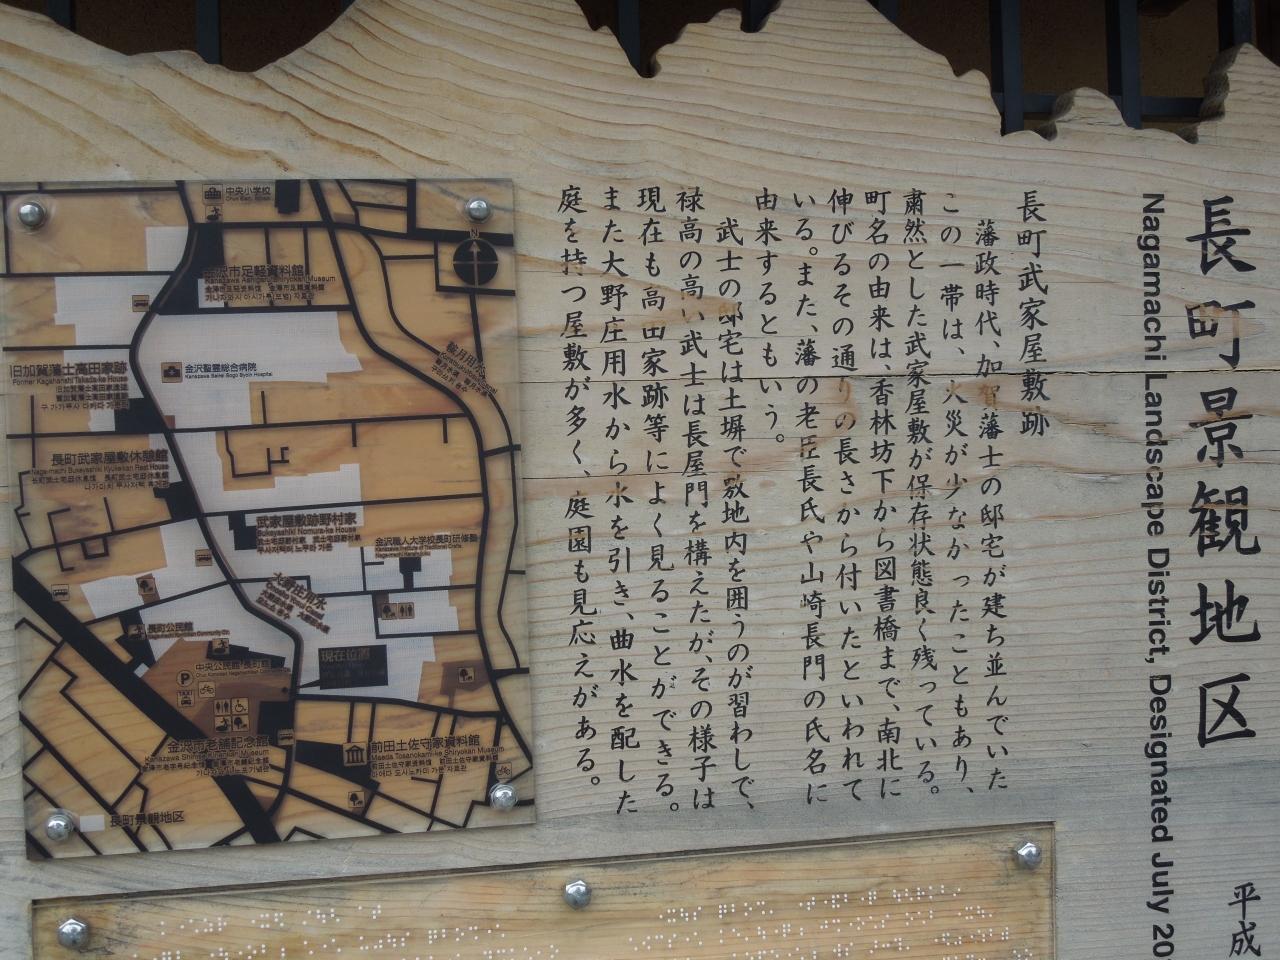 長町景観地区
Nagamachi Landscape District, Designated July 20
平成
長町武家屋敷跡
藩政時代、加賀藩士の邸宅が建ち並んでいた
この一帯は、火災が少なかったこともあり、
粛然とした武家屋敷が保存状態良く残っている。
町名の由来は、香林坊下から図書橋まで、南北に
伸びるその通りの長さから付いたといわれて
いる。また、藩の老臣長氏や山崎長門の氏名に
由来するともいう。
武士の邸宅は土塀で敷地内を囲うのが習わしで、
禄高の高い武士は長屋門を構えたが、その様子は
現在も高田家跡等によく見ることができる。
また大野庄用水から水を引き、曲水を配した
庭を持つ屋敷が多く、庭園も見応えがある。
中央小学校
N
金沢市足軽資料館
Kanazawa Ashigaru Shiryokan Museum
金沢聖霊総合病院
Kanazawa Seirei Sogo Byoin Hospital
旧加賀藩士高田家跡
Former Kagahanshi Takada-ke House
鞍月用水
長町武家屋敷休憩館
Nagamachi Bukeyashiki Kyukeikan Rest House
武家屋敷跡野村家
Bukeyashiki Nomura-ke House
金沢職人大学校長町研修塾
大野庄用水
長町公民館
現在位置
中央公民館 長町館
P
TAXI
金沢市老舗記念館
前田土佐守家資料館
Maeda Tosanokami-ke Shiryokan Museum
長町景観地区